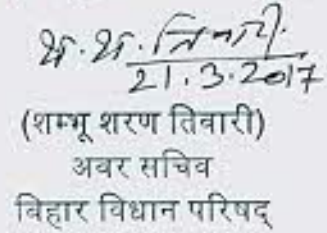 श. श. तिवारी.
21.3.2017
(शम्भू शरण तिवारी)
अवर सचिव
बिहार विधान परिषद्